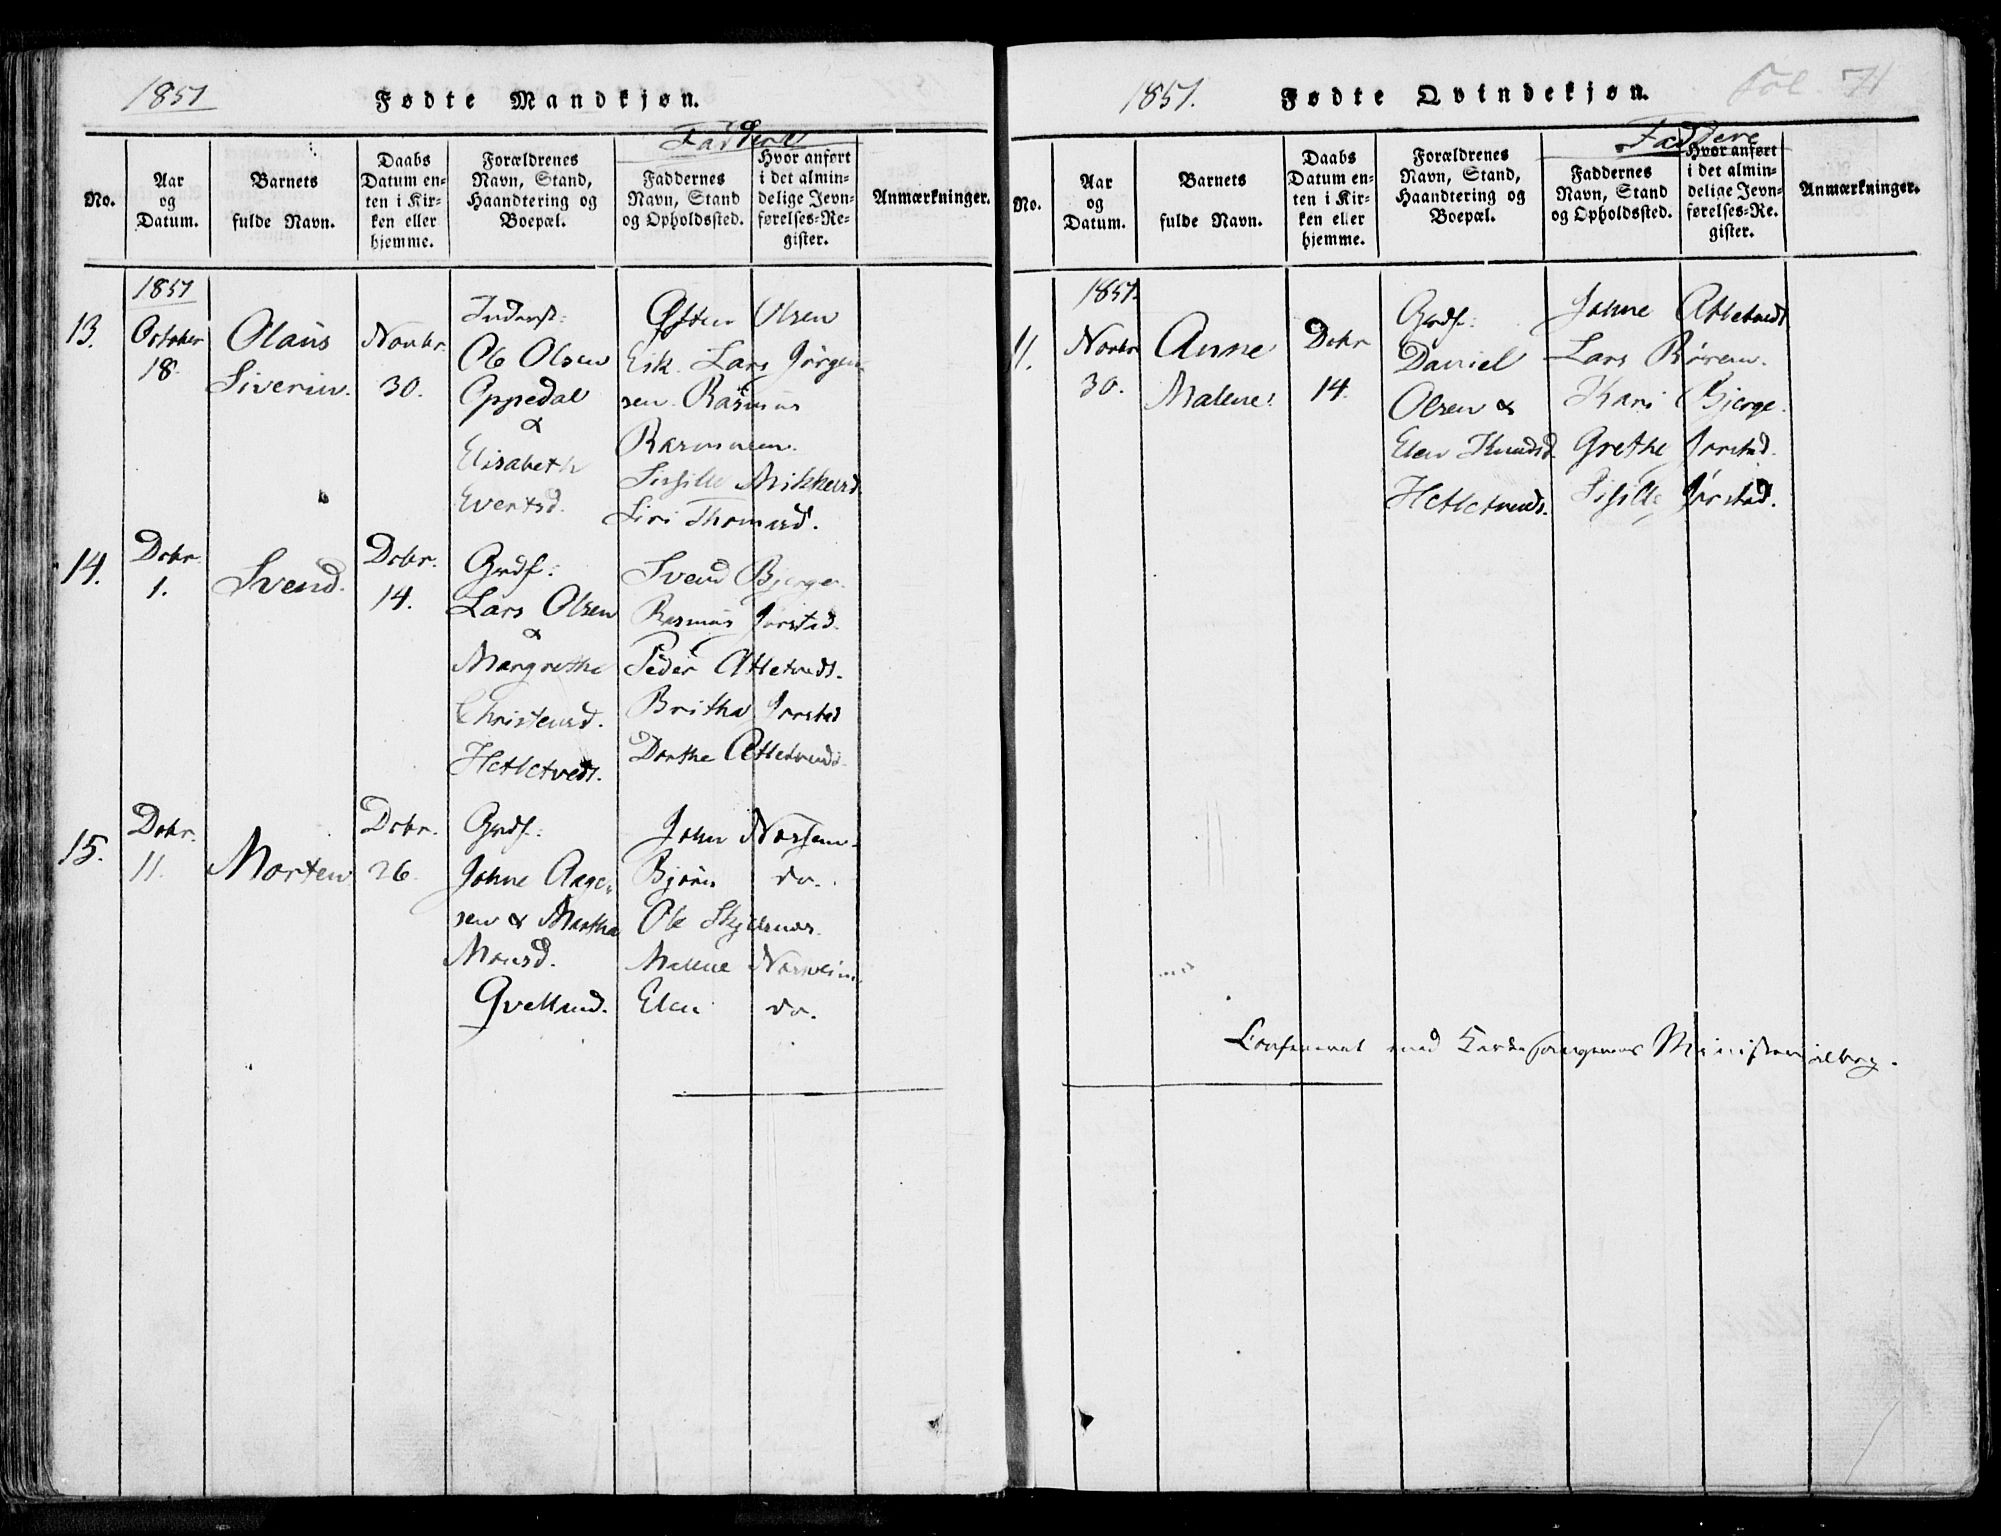 1851
Fødte Mandkjøn.
Faddere
No.
Aar
og
Datum.
Barnets
fulde Navn.
Daabs
Datum en-
ten i Kir-
ken eller
hjemme.
Forældrenes
Navn, Stand,
Haandtering og
Boepæl.
Faddernes
Navn, Stand
og Opholdssted.
Hvor anført
i det almin-
delige Jevn-
førelses-Re-
gister.
Anmærkninger.
1851
13.
October
18.
Olaus
Siverin.
Novbr.
30.
Inderst:
Ole Olsen
Oppedal
&
Elisabeth
Evertsd.
Østen Olsen
Eik. Lars Jørgen
sen. Rasmus
Rasmusen.
Sissille Mikkelsd.
Siri Thomasd.
14.
Debr.
1.
Svend.
Debr.
14.
Grdf:
Lars Olsen
&
Margrethe
Christensd.
Hetletvedt.
Svend Bjerge.
Rasmus Jørstad.
Peder Attletvedt.
Britha Jørstad
Dorthe Attletvedt.
15.
Debr.
11.
Morten
Debr.
26.
Grdf:
Johne Aage-
sen & Martha
Monsd.
Qvellund.
John
Bjørn do.
Ole
Malene
Elen do.
1851.
Fødte Qvindekjøn.
Fol. 71
Faddere
No.
Aar
og
Datum.
Barnets
fulde Navn.
Daabs
Datum en-
ten i Kir-
ken eller
hjemme.
Forældrenes
Navn, Stand,
Haandtering og
Boepæl.
Faddernes
Navn, Stand
og Opholdssted.
Hvor anført
i det almin-
delige Jevn-
førelses-Re-
gister.
Anmærkninger.
1851.
11.
Novbr
30.
Anne
Malene.
Debr
14.
Grdf:
Daniel
Olsen &
Elen Knudsd.
Hetletvedt.
Johne Attletvedt
Lars Røren.
Kari Bjerge.
Grethe Jørstad.
Sisille Jørstad.
Confereret med Ministerialbog.